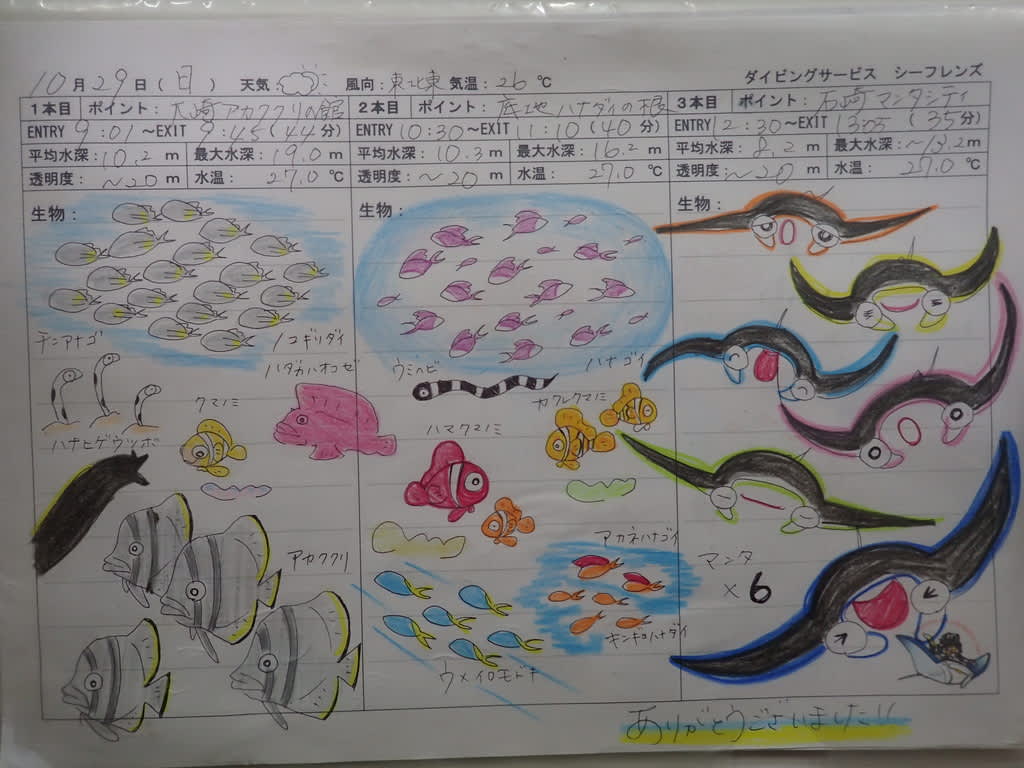 10月29日(日) 天気: 風向:東北東 気温:26℃ ダイビングサービス シーフレンズ
1本目 ポイント:大崎アカククリの館 2本目 ポイント:底地ハナダイの根 3本目 ポイント:石崎マンタシティ
ENTRY 9:01~EXIT 9:45(44分) ENTRY 10:30~EXIT 11:10(40分) ENTRY 12:30~EXIT 13:05(35分)
平均水深:10.2m 最大水深:19.0m 平均水深:10.3m 最大水深:16.2m 平均水深:8.2m 最大水深:~13.2m
透明度:~20m 水温:27.0℃ 透明度:~20m 水温:27.0℃ 透明度:~20m 水温:27.0℃
生物: 生物: 生物:
チンアナゴ ノコギリダイ
ハダカハオコゼ ウミヘビ ハナゴイ
クマノミ カクレクマノミ
ハナヒゲウツボ ハマクマノミ
アカククリ アカネハナゴイ マンタ
×6
キンギョハナダイ
ウメイロモドキ
ありがとうございました!!